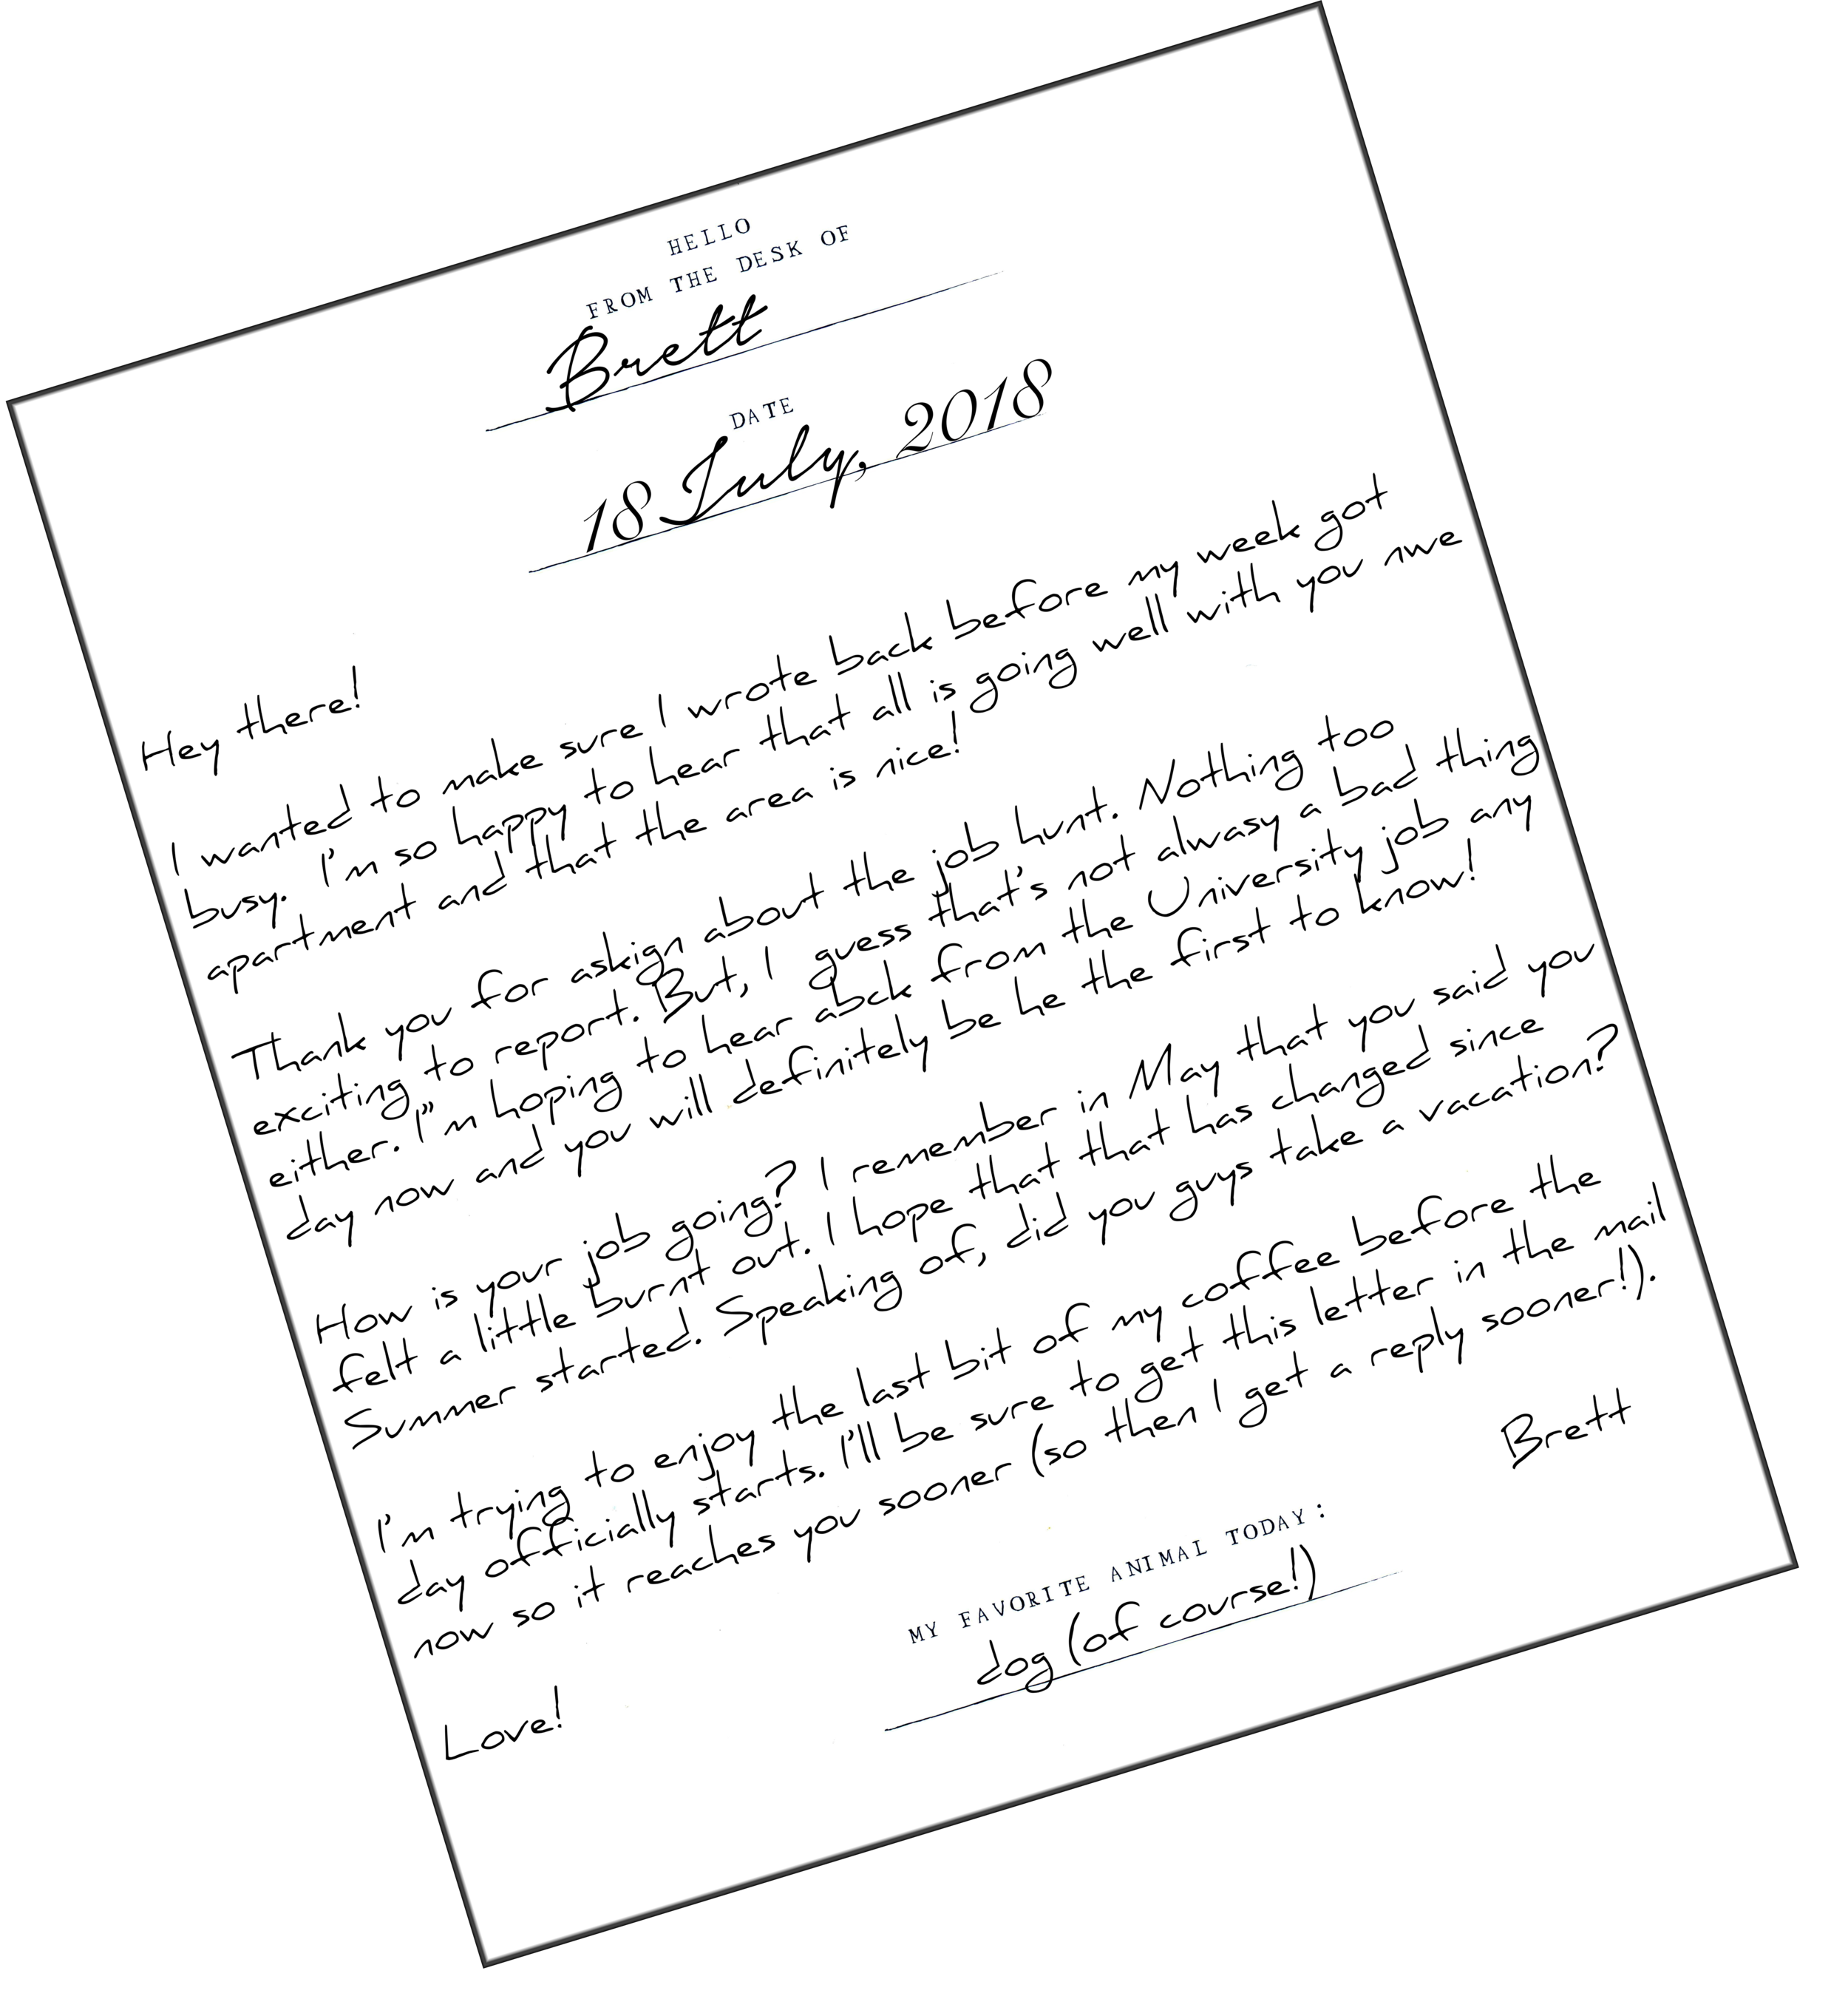 HELLO
FROM THE DESK OF
Brett
DATE
18 July, 2018
Hey there!
I wanted to make sure I wrote back before my week got
busy. I'm so happy to hear that all is going well with you nwe
apartment and that the area is nice!
Thank you for askign about the job hunt. Nothing too
exciting to report. But, I guess that's not alwasy a bad thing
either. I"m hoping to hear abck from the University job any
day now and you will definitely be he the first to know!
How is your job going? I remember in May that you said you
felt a little burnt out. I hope that that has changed since
Summer started. Speaking of, did you guys take a vacation?
I'm trying to enjoy the last bit of my coffee before the
day officially starts. I'll be sure to get this letter in the mail
now so it reaches you sooner (so then I get a reply sooner!).
Love!
Brett
MY FAVORITE ANIMAL TODAY:
dog (of course!)